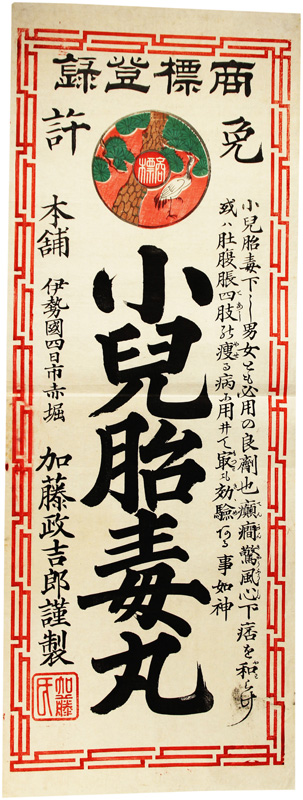 商標登録
免許
商標
小兒胎毒下し男女とも必用の良劑也癲癇驚風心下痞を和らげ
或ハ肚腹脹四肢の瘦る病に用ゐて最も効驗ある事如神
小兒胎毒丸
本舗 伊勢國四日市赤堀 加藤政吉郎謹製
加藤氏